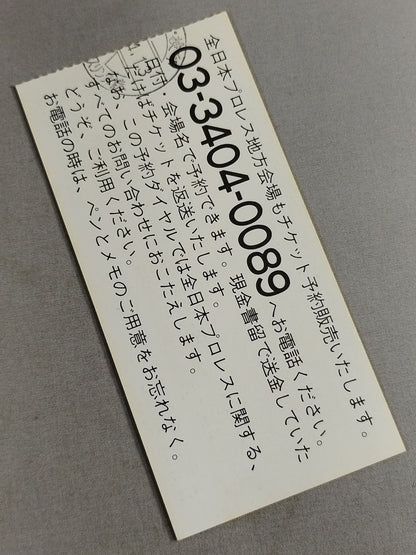 全日本プロレス地方会場もチケット予約販売いたします。
03-3404-0089へお電話ください。
日付、会場名で予約できます。現金書留で送金していた
だければチケットを返送いたします。
なお、この予約ダイヤルでは全日本プロレスに関する、
すべてのお問い合わせにおこたえします。
どうぞ、ご利用ください。
お電話の時は、ペンとメモのご用意をお忘れなく。